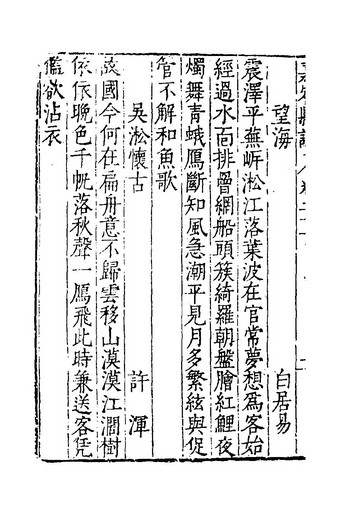 望海　白居易
震澤平蕪岍淞江落葉波在官常夢想爲客始
經過水面排罾網船頭簇綺羅朝盤膾紅鯉夜
燭舞青蛾鴈斷知風急潮平見月多繁絃與促
管不解和魚歌
吳淞懷古　許渾
故國今何在扁舟意不歸雲移山漠漠江濶樹
依依晚色千帆落秋聲一鴈飛此時兼送客凭
檻欲沾衣